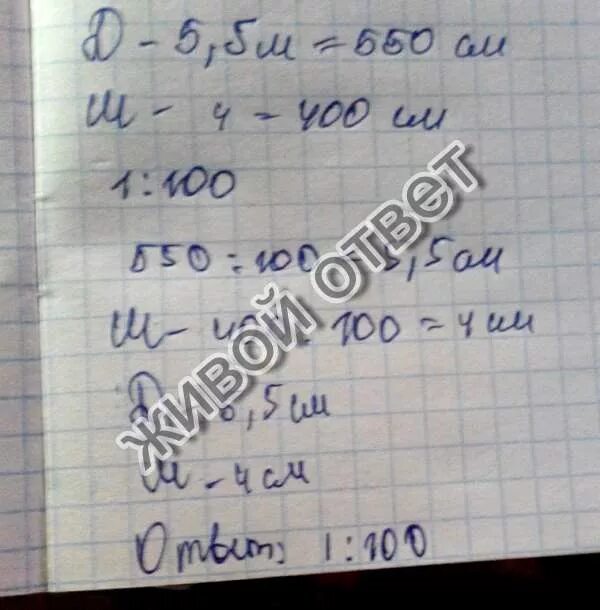 Д - 5,5м = 550 см
Ш - 4 = 400 см
1:100
550 : 100 = 5,5 см
Ш - 400 : 100 = 4 см
Д - 5,5 см
Ш - 4 см
Ответ: 1:100
ЖИВОЙ ОТВЕТ